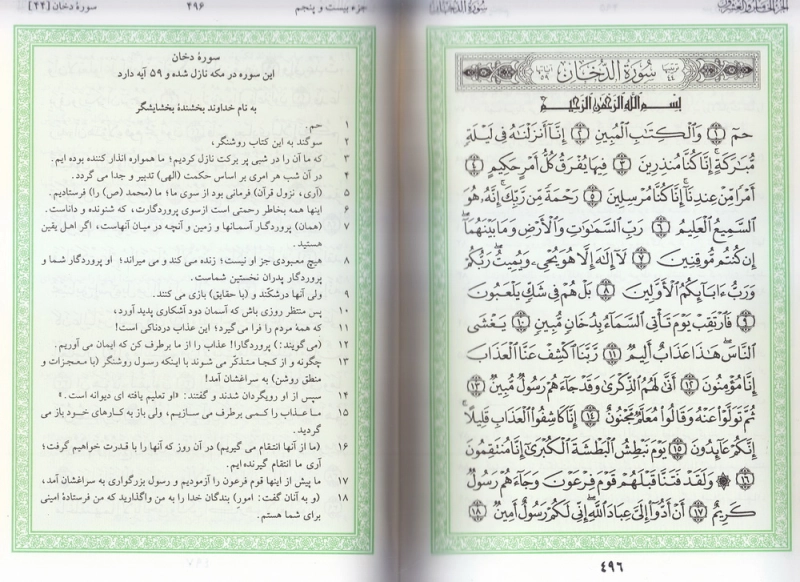 الجزء الخامس والعشرون
سورة الدخان
سُورَةُ الدُّخَانِ
بِسْمِ اللَّهِ الرَّحْمَٰنِ الرَّحِيمِ
حمٓ ۝١ وَالْكِتَابِ الْمُبِينِ ۝٢ إِنَّا أَنزَلْنَاهُ فِي لَيْلَةٍ
مُّبَارَكَةٍ إِنَّا كُنَّا مُنذِرِينَ ۝٣ فِيهَا يُفْرَقُ كُلُّ أَمْرٍ حَكِيمٍ ۝٤
أَمْرًا مِّنْ عِندِنَا إِنَّا كُنَّا مُرْسِلِينَ ۝٥ رَحْمَةً مِّن رَّبِّكَ إِنَّهُ هُوَ
السَّمِيعُ الْعَلِيمُ ۝٦ رَبِّ السَّمَاوَاتِ وَالْأَرْضِ وَمَا بَيْنَهُمَا
إِن كُنتُم مُّوقِنِينَ ۝٧ لَا إِلَٰهَ إِلَّا هُوَ يُحْيِي وَيُمِيتُ رَبُّكُمْ
وَرَبُّ ءَابَائِكُمُ الْأَوَّلِينَ ۝٨ بَلْ هُمْ فِي شَكٍّ يَلْعَبُونَ
۝٩ فَارْتَقِبْ يَوْمَ تَأْتِي السَّمَاءُ بِدُخَانٍ مُّبِينٍ ۝١٠ يَغْشَى
النَّاسَ هَٰذَا عَذَابٌ أَلِيمٌ ۝١١ رَّبَّنَا اكْشِفْ عَنَّا الْعَذَابَ
إِنَّا مُؤْمِنُونَ ۝١٢ أَنَّىٰ لَهُمُ الذِّكْرَىٰ وَقَدْ جَاءَهُمْ رَسُولٌ مُّبِينٌ ۝١٣
ثُمَّ تَوَلَّوْا عَنْهُ وَقَالُوا مُعَلَّمٌ مَّجْنُونٌ ۝١٤ إِنَّا كَاشِفُوا الْعَذَابِ قَلِيلًا
إِنَّكُمْ عَائِدُونَ ۝١٥ يَوْمَ نَبْطِشُ الْبَطْشَةَ الْكُبْرَىٰ إِنَّا مُنتَقِمُونَ
۝١٦ ۞ وَلَقَدْ فَتَنَّا قَبْلَهُمْ قَوْمَ فِرْعَوْنَ وَجَاءَهُمْ رَسُولٌ
كَرِيمٌ ۝١٧ أَنْ أَدُّوا إِلَيَّ عِبَادَ اللَّهِ إِنِّي لَكُمْ رَسُولٌ أَمِينٌ ۝١٨
٤٩٦
جزء بیست و پنجم ۴۹۶ سورهٔ دخان [۴۴]
سورهٔ دخان
این سوره در مکه نازل شده و ۵۹ آیه دارد
به نام خداوند بخشندهٔ بخشایشگر
۱ حم.
۲ سوگند به این کتاب روشنگر،
۳ که ما آن را در شبی پر برکت نازل کردیم؛ ما همواره انذار کننده بوده ایم.
۴ در آن شب هر امری بر اساس حکمت (الهی) تدبیر و جدا می گردد.
۵ (آری، نزول قرآن) فرمانی بود از سوی ما؛ ما (محمد (ص) را) فرستادیم.
۶ اینها همه بخاطر رحمتی است ازسوی پروردگارت، که شنونده و داناست.
۷ (همان) پروردگار آسمانها و زمین و آنچه در میان آنهاست، اگر اهل یقین
هستید.
۸ هیچ معبودی جز او نیست؛ زنده می کند و می میراند؛ او پروردگار شما و
پروردگار پدران نخستین شماست.
۹ ولی آنها درشکّند و (با حقایق) بازی می کنند.
۱۰ پس منتظر روزی باش که آسمان دود آشکاری پدید آورد،
۱۱ که همهٔ مردم را فرا می گیرد؛ این عذاب دردناکی است!
۱۲ (می گویند:) پروردگارا! عذاب را از ما برطرف کن که ایمان می آوریم.
۱۳ چگونه و از کجا متذکّر می شوند با اینکه رسول روشنگر (با معجزات و
منطق روشن) به سراغشان آمد!
۱۴ سپس از او رویگردان شدند و گفتند: «او تعلیم یافته ای دیوانه است.»
۱۵ ما عذاب را کمی برطرف می سازیم، ولی باز به کارهای خود باز می
گردید.
۱۶ (ما از آنها انتقام می گیریم) در آن روز که آنها را با قدرت خواهیم گرفت؛
آری ما انتقام گیرنده ایم.
۱۷ ما پیش از اینها قوم فرعون را آزمودیم و رسول بزرگواری به سراغشان آمد،
۱۸ (و به آنان گفت: امور) بندگان خدا را به من واگذارید که من فرستادهٔ امینی
برای شما هستم.